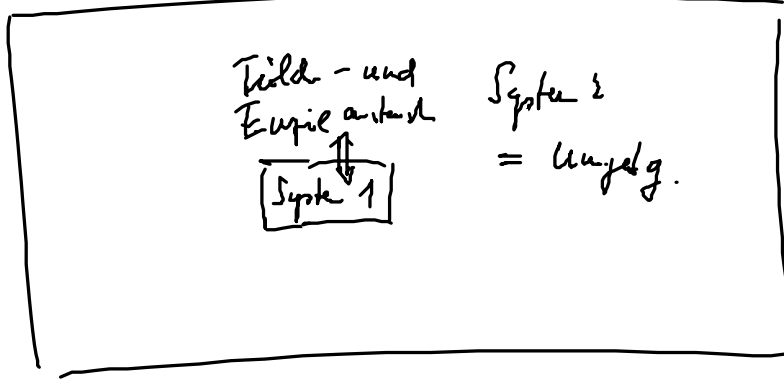 Teilch- und
Energieaustausch
System 1
System 2
= Umgebg.